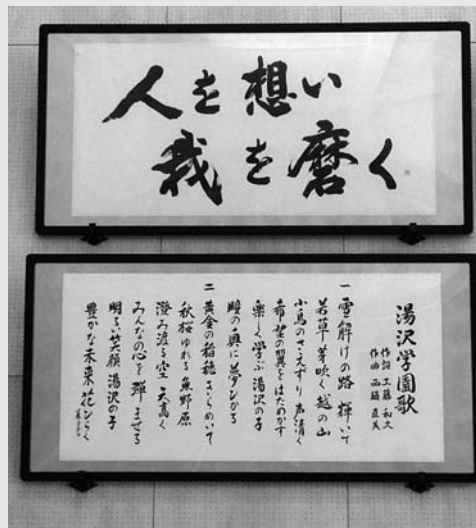 人を想い
我を磨く
湯沢学園歌
作詞 工藤和久
作曲 西脇直美
一 雪解けの路 輝いて
若草芽吹く 越の山
小鳥のさえずり 声清く
希望の翼を はためかす
楽しく学ぶ 湯沢の子
瞳の奥に 夢ひかる
二 黄金の稲穂 きらめいて
秋桜ゆれる 魚野原
澄み渡る空 天高く
みんなの心を 弾ませる
明るい笑顔 湯沢の子
豊かな未来 花ひらく